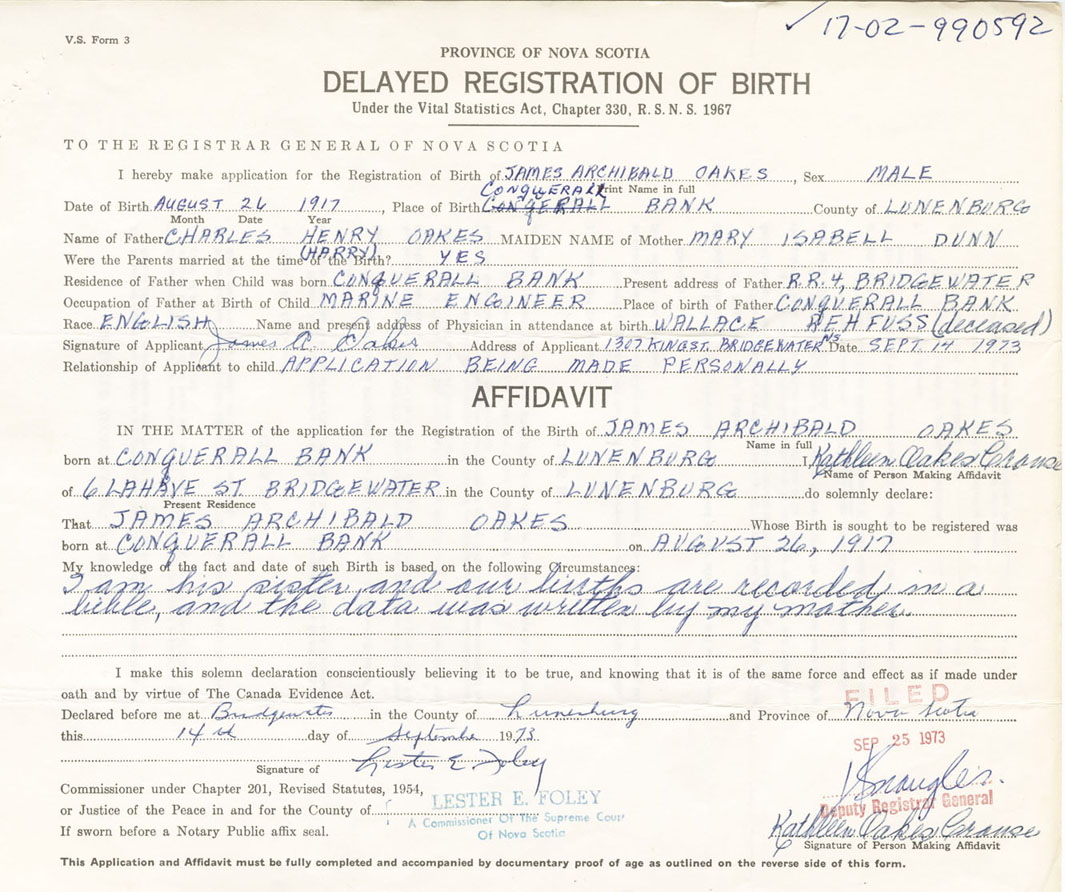 ✓ 17-02-990592
V.S. Form 3
PROVINCE OF NOVA SCOTIA
DELAYED REGISTRATION OF BIRTH
Under the Vital Statistics Act, Chapter 330, R. S. N. S. 1967
TO THE REGISTRAR GENERAL OF NOVA SCOTIA
I hereby make application for the Registration of Birth of JAMES ARCHIBALD OAKES, Sex MALE
CONQUERALL Print Name in full
Date of Birth AUGUST 26 1917, Place of Birth CONQERALL BANK County of LUNENBURG
Month Date Year
Name of Father CHARLES HENRY OAKES MAIDEN NAME of Mother MARY ISABELL DUNN
(HARRY)
Were the Parents married at the time of the Birth? YES
Residence of Father when Child was born CONQUERALL BANK Present address of Father R.R.4, BRIDGEWATER
Occupation of Father at Birth of Child MARINE ENGINEER Place of birth of Father CONQUERALL BANK
Race ENGLISH Name and present address of Physician in attendance at birth WALLACE REHFUSS (deceased)
Signature of Applicant James A. Oakes Address of Applicant 1307 KING ST. BRIDGEWATER NS Date SEPT. 14 1973
Relationship of Applicant to child APPLICATION BEING MADE PERSONALLY
AFFIDAVIT
IN THE MATTER of the application for the Registration of the Birth of JAMES ARCHIBALD OAKES
Name in full
born at CONQUERALL BANK in the County of LUNENBURG I, Kathleen Oakes Crouse
Name of Person Making Affidavit
of 6 LAHAVE ST. BRIDGEWATER in the County of LUNENBURG do solemnly declare:
Present Residence
That JAMES ARCHIBALD OAKES Whose Birth is sought to be registered was
born at CONQUERALL BANK on AUGUST 26, 1917
My knowledge of the fact and date of such Birth is based on the following Circumstances:
I am his sister and our births are recorded in a
bible, and the data was written by my mother.
I make this solemn declaration conscientiously believing it to be true, and knowing that it is of the same force and effect as if made under
oath and by virtue of The Canada Evidence Act.
FILED
Declared before me at Bridgewater in the County of Lunenburg and Province of Nova Scotia
this 14th day of September 1973
SEP 25 1973
Signature of Lester E. Foley
Commissioner under Chapter 201, Revised Statutes, 1954,
or Justice of the Peace in and for the County of
LESTER E. FOLEY
A Commissioner Of The Supreme Court
Of Nova Scotia
Deputy Registrar General
If sworn before a Notary Public affix seal.
Kathleen Oakes Crouse
Signature of Person Making Affidavit
This Application and Affidavit must be fully completed and accompanied by documentary proof of age as outlined on the reverse side of this form.